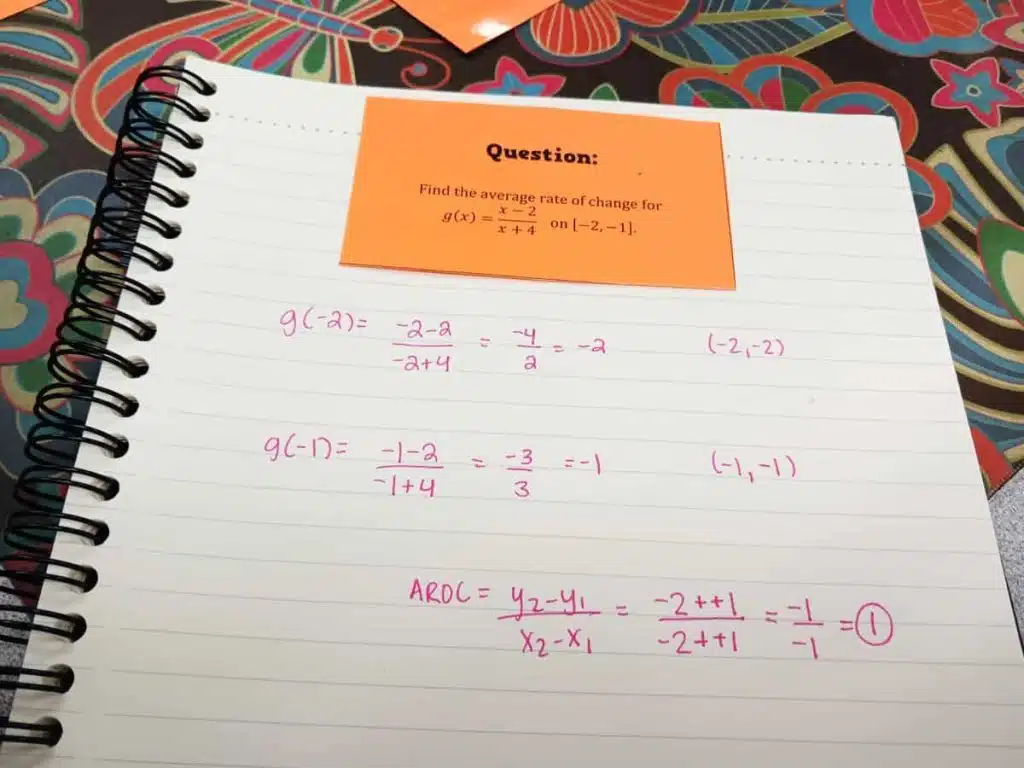 Question:
Find the average rate of change for
g(x) = x − 2 / x + 4 on [−2, −1].
g(-2) = -2-2 / -2+4 = -4 / 2 = -2 (-2, -2)
g(-1) = -1-2 / -1+4 = -3 / 3 = -1 (-1, -1)
AROC = y₂-y₁ / x₂-x₁ = -2++1 / -2++1 = -1 / -1 = 1